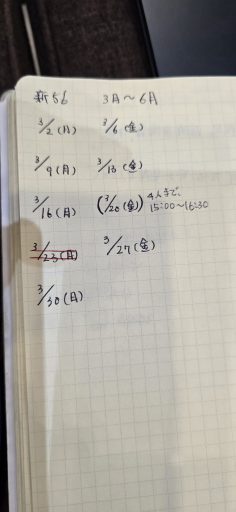 新56 3月～6月
3/2(月) 3/6(金)
3/9(月) 3/13(金)
3/16(月) (3/20(金)) 4人まで、
15:00～16:30
3/23(月) 3/27(金)
3/30(月)